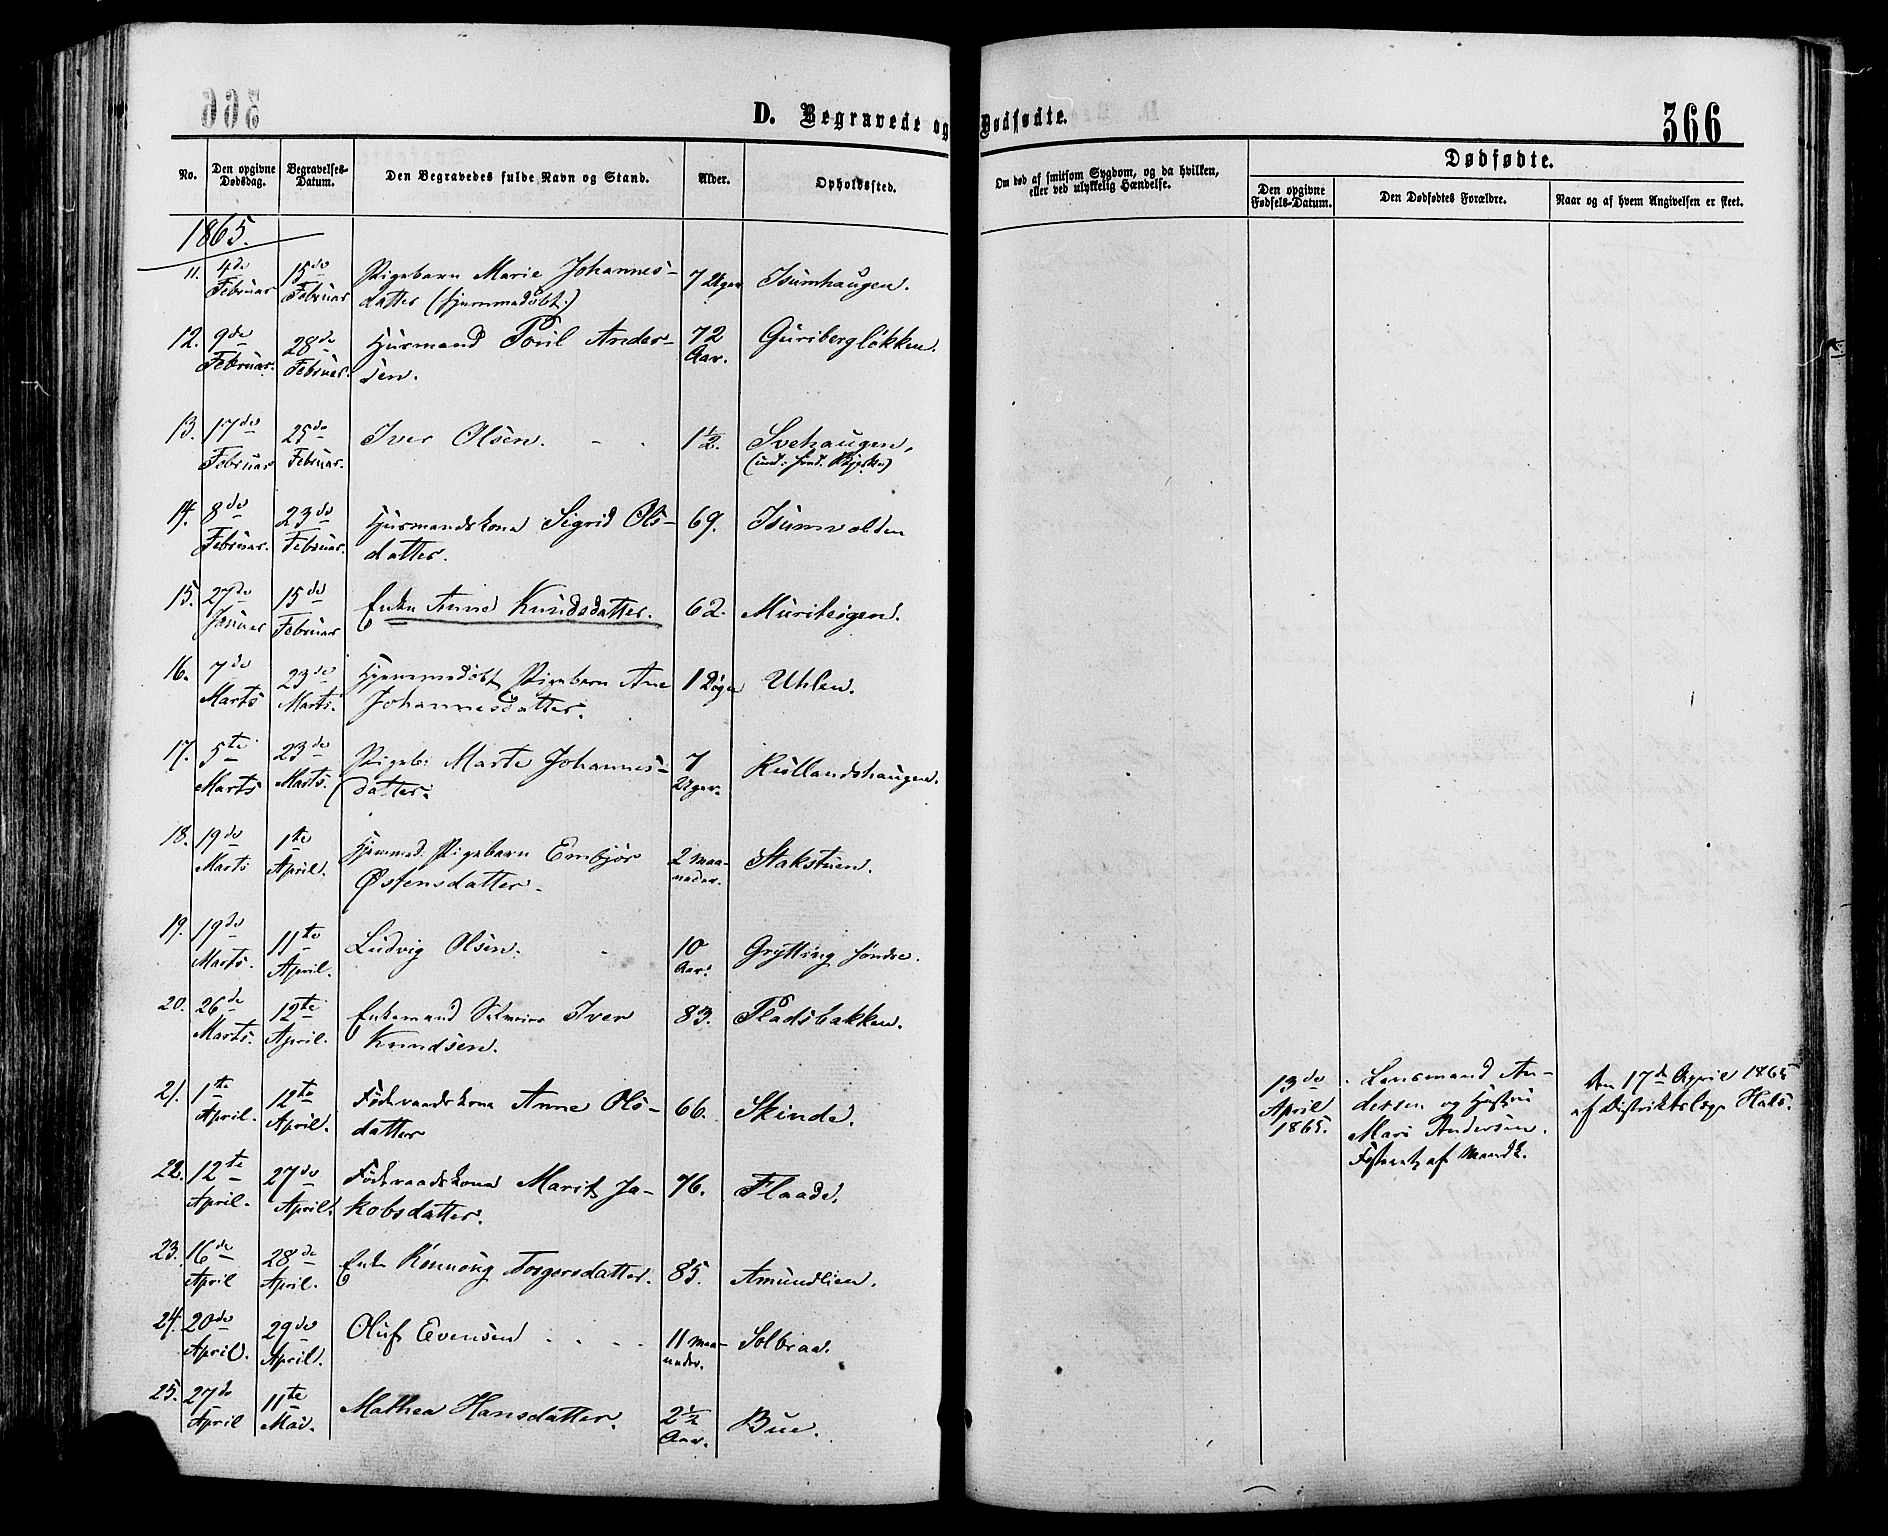 D. Begravede og Dødfødte.
366
No.
Den opgivne Dødsdag.
Begravelses-Datum.
Den Begravedes fulde Navn og Stand.
Alder.
Opholdssted.
Om død af smitsom Sygdom, og da hvilken,
eller ved ulykkelig Hændelse.
Dødfødte.
Den opgivne Fødsels-Datum.
Den Dødfødtes Forældre.
Naar og af hvem Angivelsen er skeet.
1865.
11. 4de Februar 15de Februar Pigebarn Marie Johannes-
datter (hjemmedøbt.) 7 Uger Isumhaugen.
12. 9de Februar. 28de Februar. Huusmand Poul Ander-
sen. 72 Aar. Guribergløkken.
13. 17de Februar 25de Februar. Iver Olsen. 1½. Svehaugen,
14. 8de Februar. 23de Februar. Huusmandskone Sigrid Ols-
datter. 69. Isumvolden
15. 27de Januar 15de Februar Enke Anne Knudsdatter. 62. Muriteigen.
16. 7de Marts 23de Marts. Hjemmedøbt Pigebarn Ane
Johannesdatter. 1 Uhlen.
17. 5te Marts 23de Marts. Pigeb: Marte Johannes-
datter. 7 Uger. Rullandshaugen.
18. 19de Marts 1te April. Hjemmed. Pigebarn Embjør
Østensdatter. 2 maa-
neder. Stakstuen.
19. 19de Marts. 11te April. Ludvig Olsen. 10 Aar. Grytting søndre.
20. 26de Marts. 12te April. Enkemand Iver
Knudsen. 83. Pladsbakken.
21. 1te April. 12te April. Føderaadskone Anne Ols-
datter 66. Skinde.
22. 12te April. 27de April. Føderaadskone Marit Ja-
kobsdatter. 76. Flaade.
23. 16de April 28de April. Enke Rønnoug Torgersdatter. 85. Amundlien.
24. 20de April. 29de April. Oluf Evensen 11 maa-
neder. Solbraa.
25. 27de April 11te Mai. Mathea Hansdatter. 2½ Aar. Bue.
13de April 1865.
Lensmand An-
dersen og Hustru
Mari Andersen.
Den 17de April 1865
af Distriktslæge